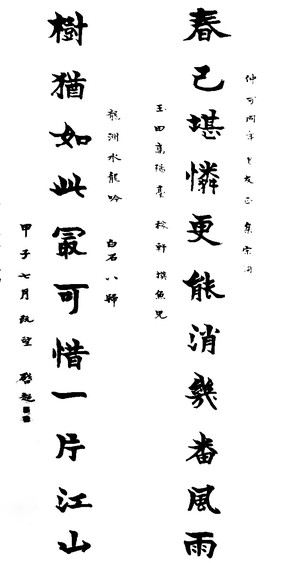 仲可同年老友正 集宋詞
春已堪憐更能消幾番風雨
玉田高陽臺 稼軒摸魚兒
龍洲水龍吟 白石八歸
樹猶如此冣可惜一片江山
甲子七月既望 啟超